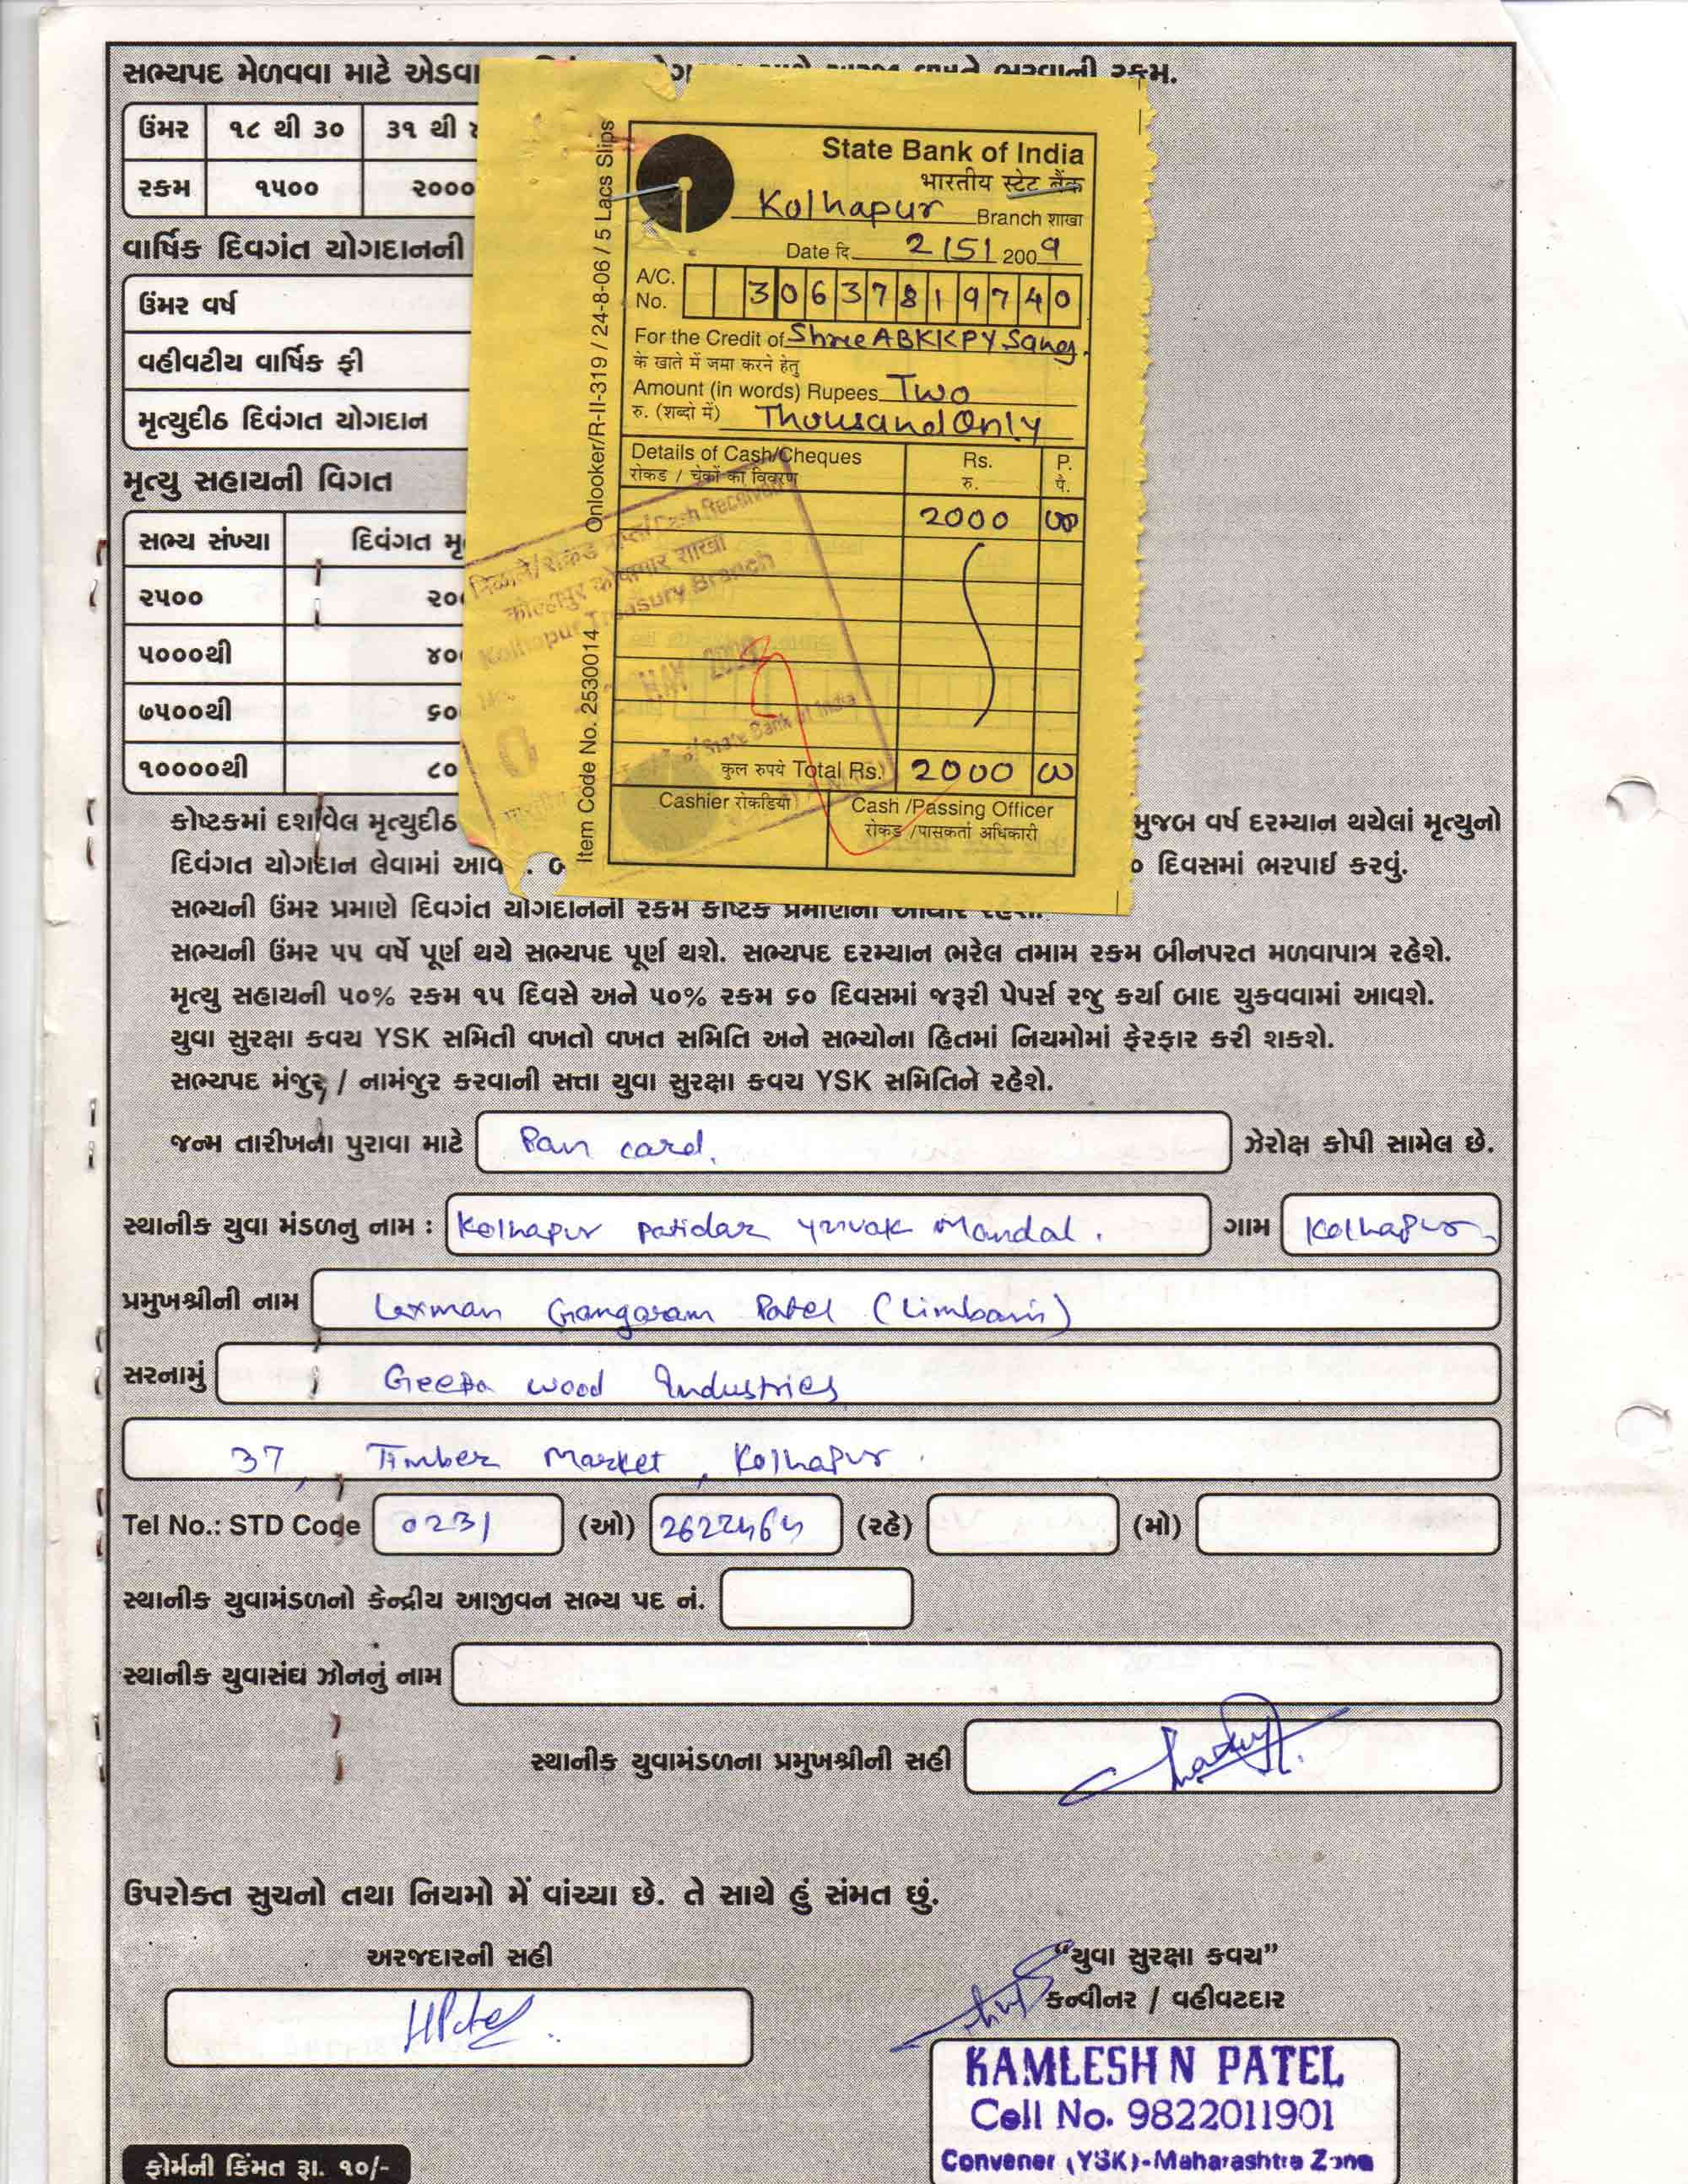 સભ્યપદ મેળવવા માટે એડવા
ભરવાની રકમ.
ઉંમર ૧૮ થી ૩૦ ૩૧ થી
રકમ ૧૫૦૦ ૨૦૦૦
વાર્ષિક દિવગંત યોગદાનની
ઉંમર વર્ષ
વહીવટીય વાર્ષિક ફી
મૃત્યુદીઠ દિવંગત યોગદાન
મૃત્યુ સહાયની વિગત
સભ્ય સંખ્યા દિવંગત મૃ
૨૫૦૦ ૨૦
૫૦૦૦થી ૪૦
૭૫૦૦થી ૬૦
૧૦૦૦૦થી ૮૦
Item Code No. 2530014 Onlooker/R-II-319 / 24-8-06 / 5 Lacs Slips
State Bank of India
भारतीय स्टेट बैंक
Kolhapur Branch शाखा
Date दि. 2/5/2009
A/C. No. 30637819740
For the Credit of Shree ABKKPY Sang.
के खाते में जमा करने हेतु
Amount (in words) Rupees Two
रु. (शब्दो में) Thousand Only
Details of Cash/Cheques Rs. P.
रोकड / चेकों का विवरण रु. पै.
2000 00
कुल रुपये Total Rs. 2000 00
Cashier रोकडिया Cash /Passing Officer
रोकड /पासकर्ता अधिकारी
Cash Received
कोल्हापुर कोषागार शाखा
Kolhapur Treasury Branch
MAY 2009
State Bank of India
કોષ્ટકમાં દર્શાવેલ મૃત્યુદીઠ મુજબ વર્ષ દરમ્યાન થયેલાં મૃત્યુનો
દિવંગત યોગદાન લેવામાં આવ દિવસમાં ભરપાઈ કરવું.
સભ્યની ઉંમર પ્રમાણે દિવગંત યોગદાનની રકમ કોષ્ટક પ્રમાણેની
સભ્યની ઉંમર ૫૫ વર્ષે પૂર્ણ થયે સભ્યપદ પૂર્ણ થશે. સભ્યપદ દરમ્યાન ભરેલ તમામ રકમ બીનપરત મળવાપાત્ર રહેશે.
મૃત્યુ સહાયની ૫૦% રકમ ૧૫ દિવસે અને ૫૦% રકમ ૬૦ દિવસમાં જરૂરી પેપર્સ રજુ કર્યા બાદ ચુકવવામાં આવશે.
યુવા સુરક્ષા કવચ YSK સમિતી વખતો વખત સમિતિ અને સભ્યોના હિતમાં નિયમોમાં ફેરફાર કરી શકશે.
સભ્યપદ મંજુર / નામંજુર કરવાની સત્તા યુવા સુરક્ષા કવચ YSK સમિતિને રહેશે.
જન્મ તારીખના પુરાવા માટે Pan card. ઝેરોક્ષ કોપી સામેલ છે.
સ્થાનીક યુવા મંડળનુ નામ : Kolhapur patidar yuvak Mandal. ગામ Kolhapur
પ્રમુખશ્રીની નામ Laxman Gangaram Patel (Limbani)
સરનામું Geeta wood Industries
37, Timber Market, Kolhapur.
Tel No.: STD Code 0231 (ઓ) 2622464 (રહે) (મો)
સ્થાનીક યુવામંડળનો કેન્દ્રીય આજીવન સભ્ય પદ નં.
સ્થાનીક યુવાસંઘ ઝોનનું નામ
સ્થાનીક યુવામંડળના પ્રમુખશ્રીની સહી
ઉપરોક્ત સુચનો તથા નિયમો મેં વાંચ્યા છે. તે સાથે હું સંમત છું.
અરજદારની સહી
HPatel.
“યુવા સુરક્ષા કવચ”
કન્વીનર / વહીવટદાર
KAMLESH N PATEL
Cell No. 9822011901
Convener (YSK)-Maharashtra Zone
ફોર્મની કિંમત રૂા. ૧૦/-